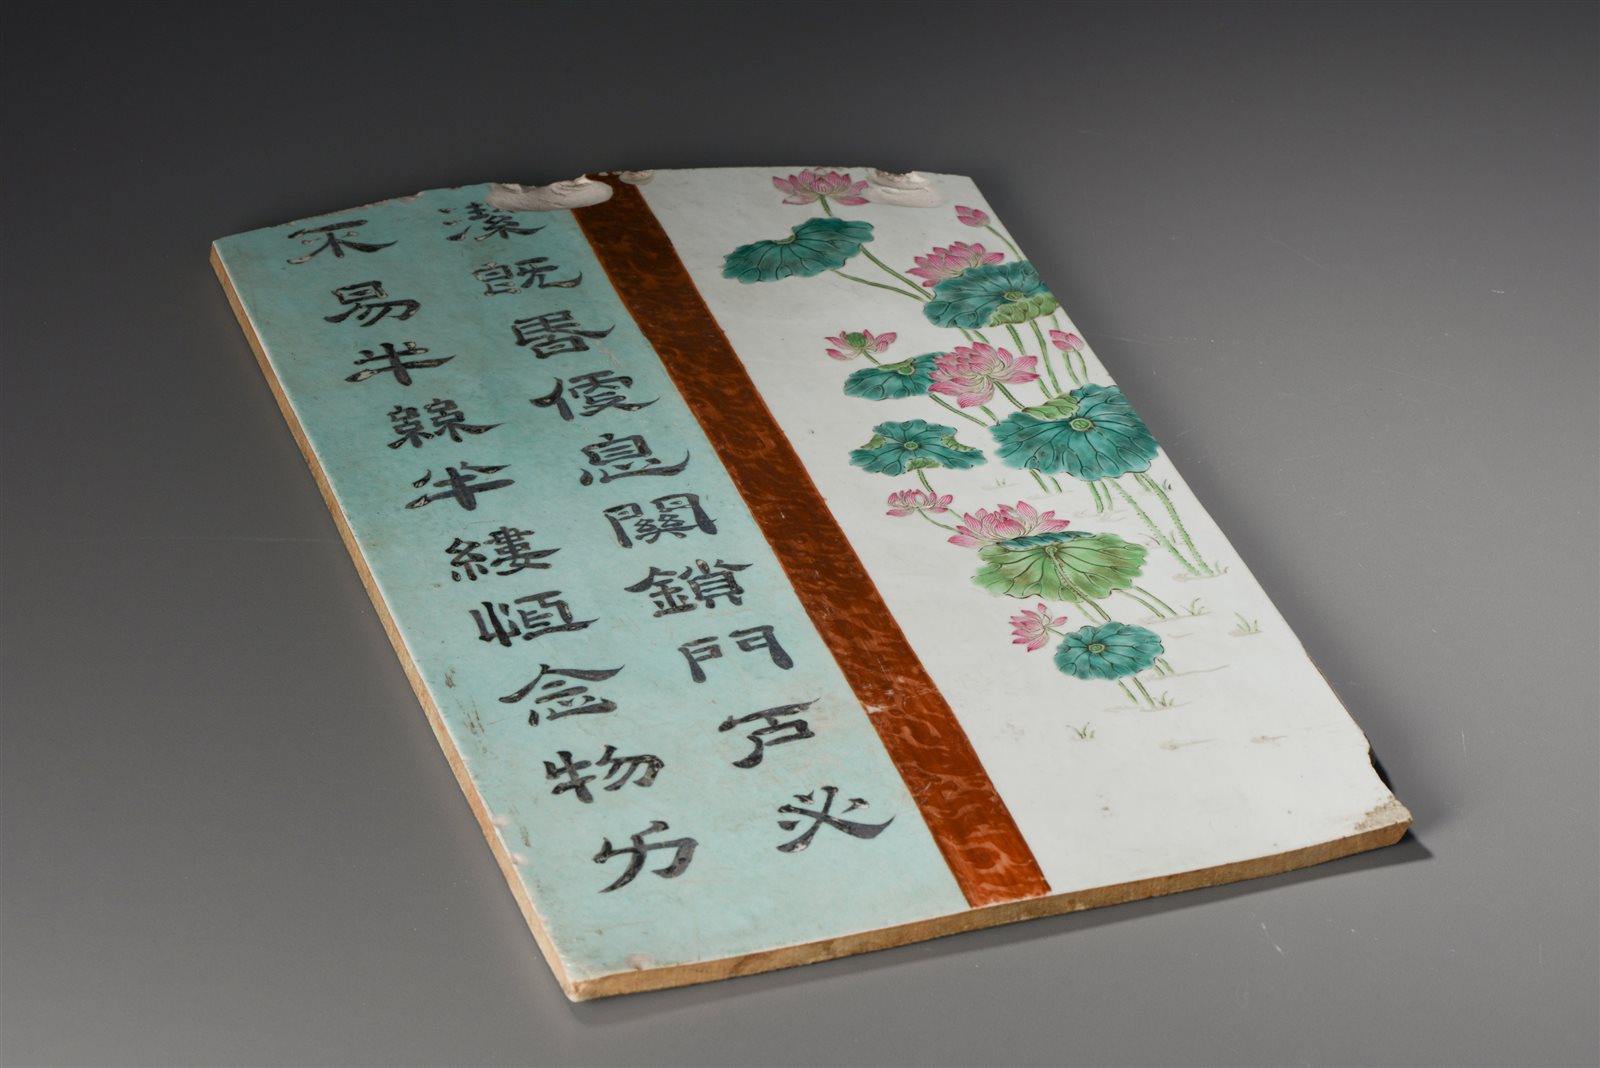 潔既昬便息關鎖門戶必
不易半絲半縷恒念物力